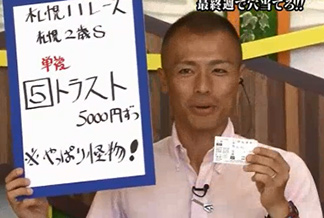 最終週で穴当てろ!!
札幌11レース
札幌2歳S
単複
5トラスト
5000円ずつ
※やっぱり怪物!